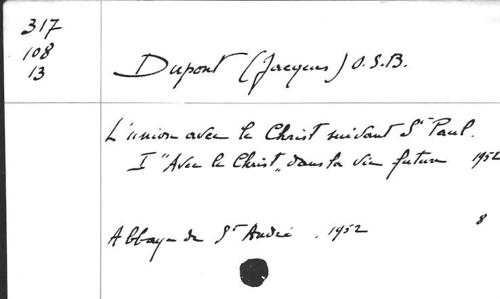 317
108
13
Dupont (Jacques) O.S.B.
L'union avec le Christ suivant St Paul.
I "Avec le Christ" dans la vie future 1952
Abbaye de St André . 1952 8